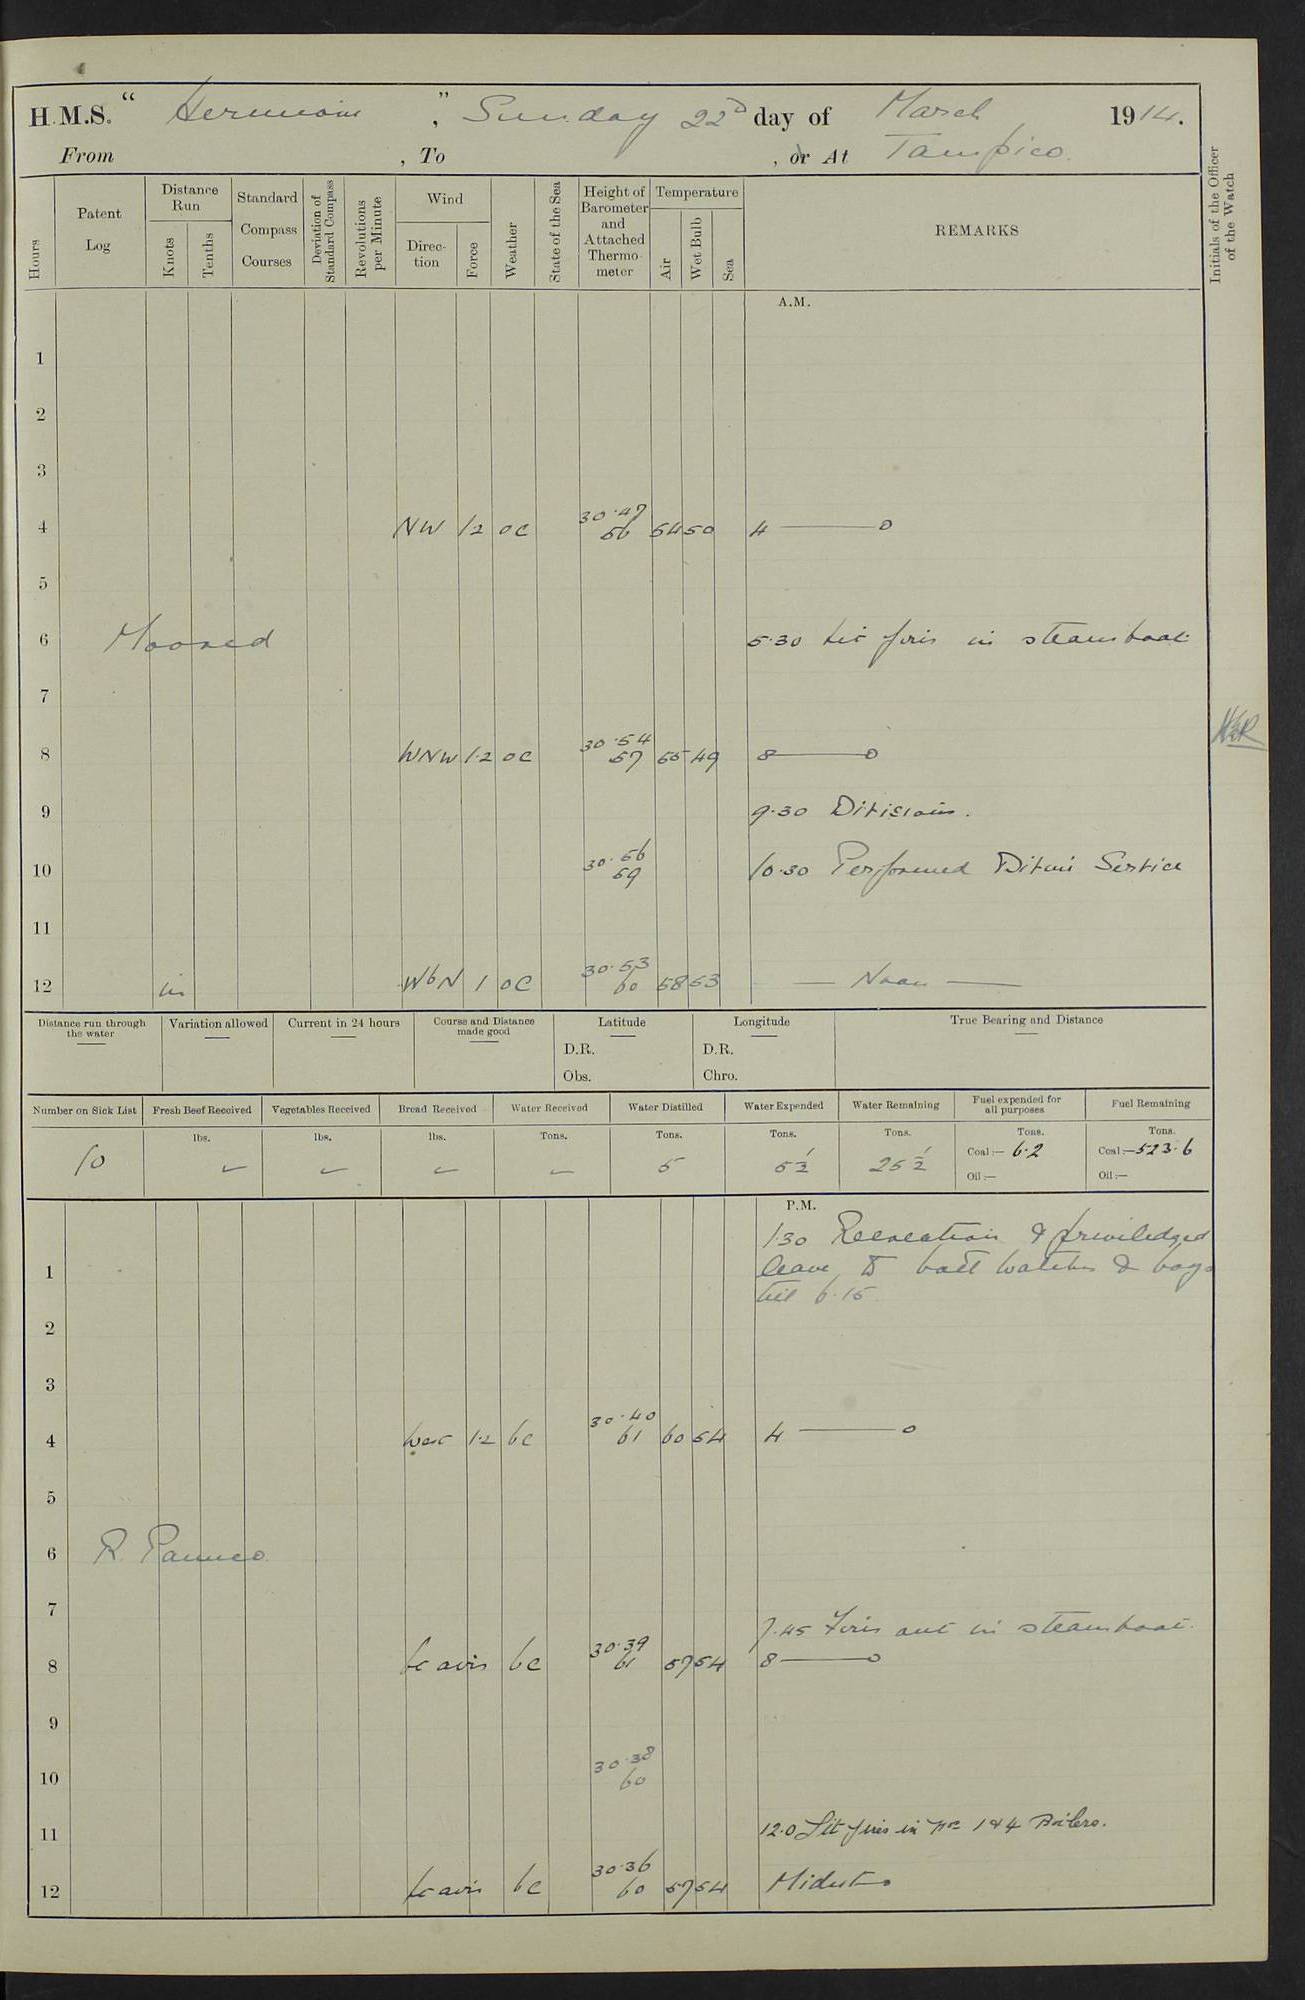 H.M.S. "Hermione", Sunday 22D day of March 1914.
From , To , or At Tampico.
Hours Patent Log Distance Run Knots Tenths Standard Compass Courses Deviation of Standard Compass Revolutions per Minute Wind Direction Force Weather State of the Sea Height of Barometer and Attached Thermometer Temperature Air Wet Bulb Sea REMARKS Initials of the Officer of the Watch
A.M.
1
2
3
4 NW 1.2 oc 30.47 56 54 50 4 ——— o
5
6 Moored 5.30 Lit fires in steamboat.
7
8 WNW 1.2 oc 30.54 57 55 49 8 ——— o
9 9.30 Divisions.
10 30.56 59 10.30 Performed Divine Service
11
12 in WbN 1 oc 30.53 60 58 53 — Noon —
Distance run through the water Variation allowed Current in 24 hours Course and Distance made good Latitude Longitude True Bearing and Distance
D.R. D.R.
Obs. Chro.
Number on Sick List Fresh Beef Received Vegetables Received Bread Received Water Received Water Distilled Water Expended Water Remaining Fuel expended for all purposes Fuel Remaining
lbs. lbs. lbs. Tons. Tons. Tons. Tons. Tons. Tons.
10 5 5½ 25½ Coal:— 6.2 Coal:— 523.6
Oil:— Oil:—
P.M.
1.30 Recreation & priviledged
1 leave to both watches & boys
till 6.15
2
3
4 West 1.2 bc 30.40 61 60 54 4 ——— o
5
6 R. Panuco
7
7.45 Fires out in steamboat.
8 Lt airs bc 30.39 61 57 54 8 ——— o
9
10 30.38 60
11 12.0 Lit fires in Nos 1 & 4 Boilers.
12 Lt airs bc 30.36 60 57 54 Midnt